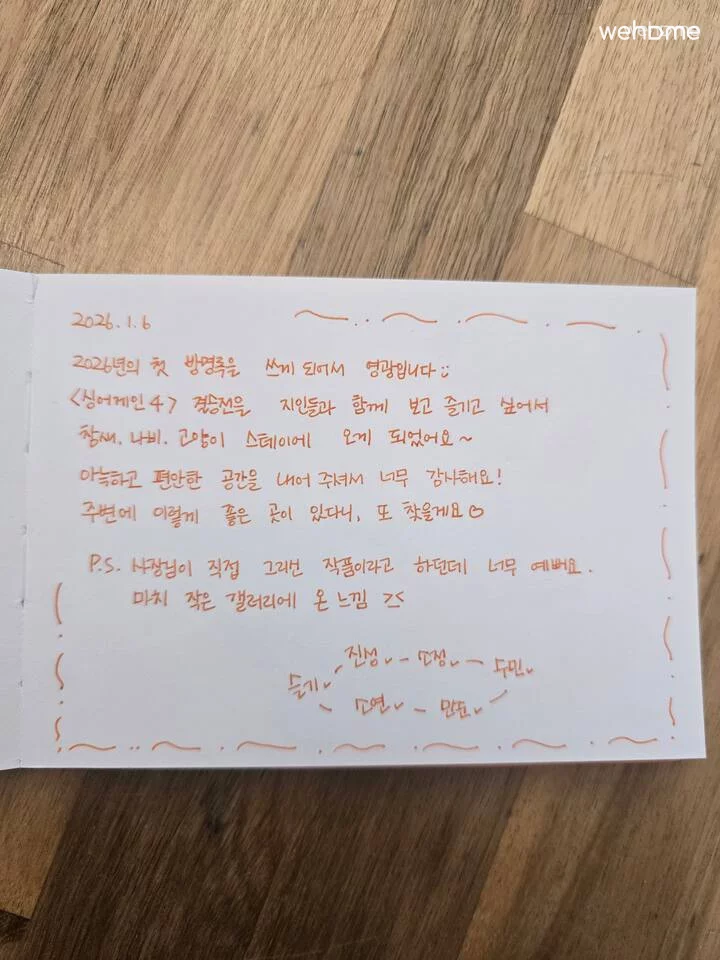 wehome
2026.1.6
2026년의 첫 방명록을 쓰게 되어서 영광입니다
<싱어게인 4> 결승전을 지인들과 함께 보고 즐기고 싶어서
참새. 나비. 고양이 스테이에 오게 되었어요~
아늑하고 편안한 공간을 내어 주셔서 너무 감사해요!
주변에 이렇게 좋은 곳이 있다니, 또 찾을게요
P.S. 사장님이 직접 그리신 작품이라고 하던데 너무 예뻐요.
마치 작은 갤러리에 온 느낌 ><
진성 - 소정 - 수민
슬기
소연 -